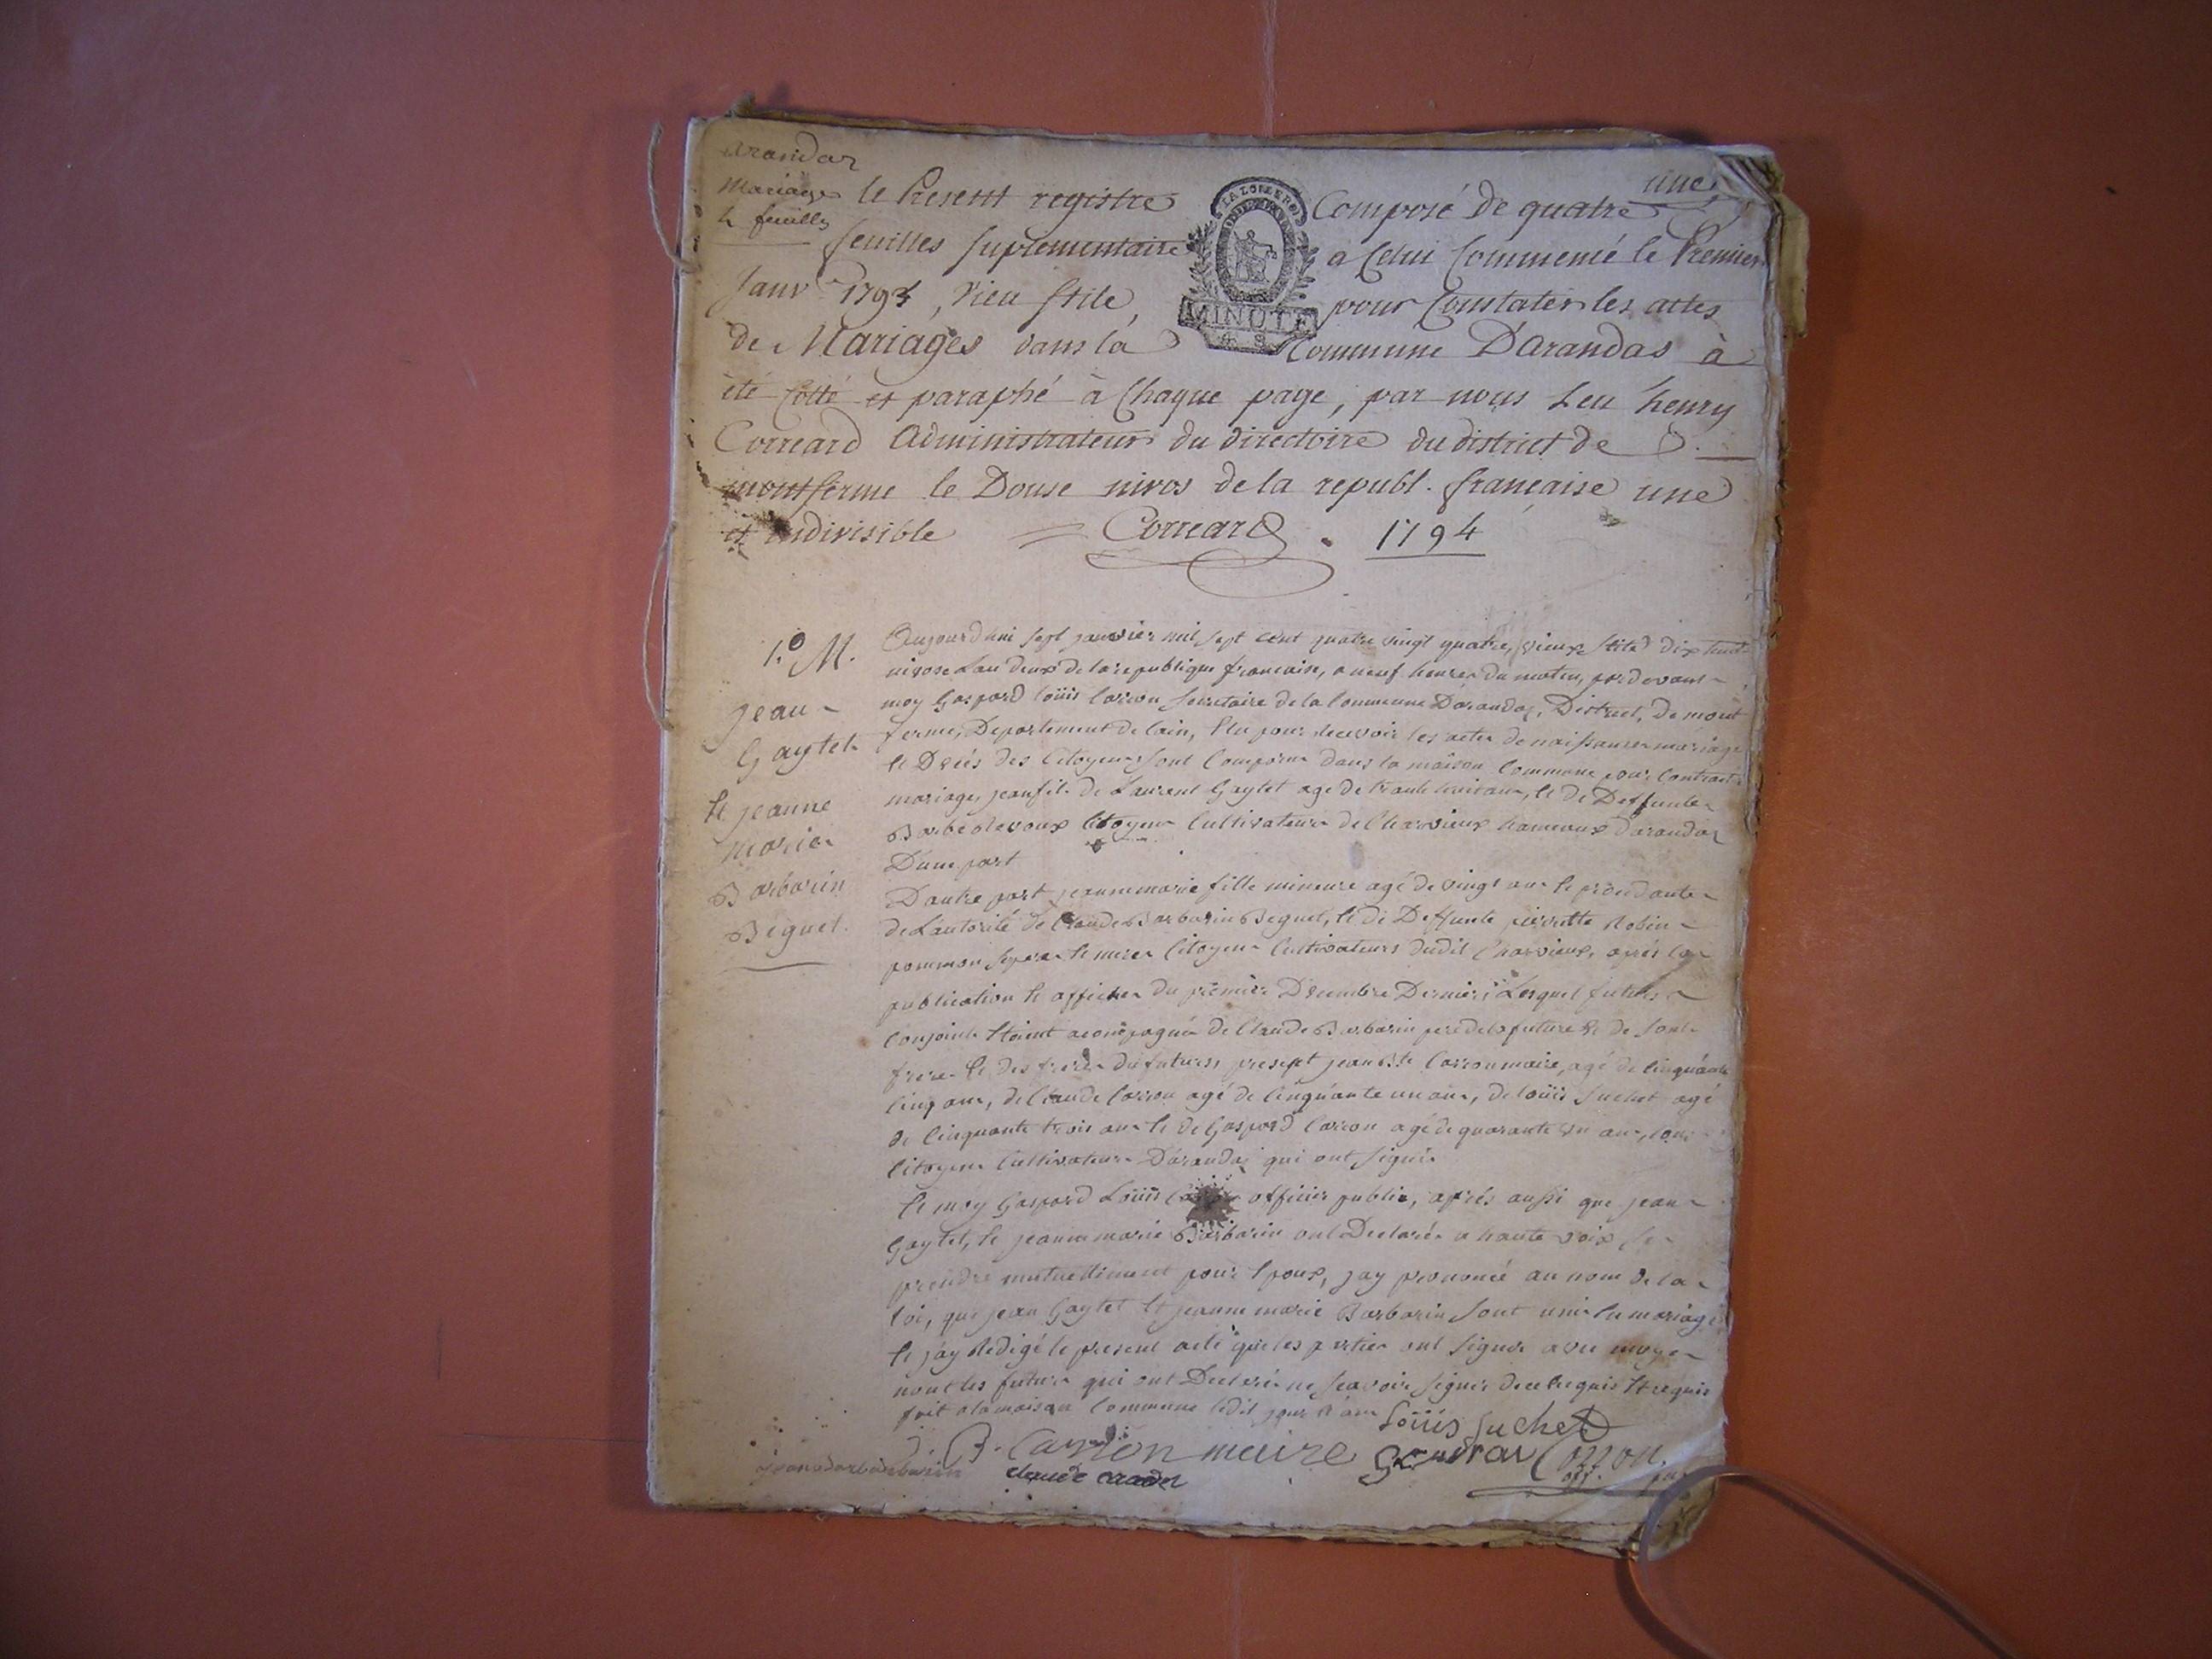 arandas
Mariages
4 feuilles
une
le Present registre Composé de quatre
feuilles suplementaire a Celui Commencé le Premier
Janv. 1793, vieu stile, pour Constater les actes
de Mariages dans la Commune Darandas à
été Cotté et paraphé à Chaque page, par nous Leu henry
Correard Administrateur du directoire du district de
montferme le Douse nivos de la republ. française une
et indivisible = Correard . 1794
LA LOI
MINUTE
1.º M.
Jean
Gaytet
et jeanne
marie
Barbarin
Béguet.
Aujourdhui sept janvier mil sept cent quatre vingt quatre, vieux stile dix huit
nivose Lan deux de la republique francaise, a neuf heures du matin, pardevant
moy Gaspard Loüis Carron secretaire de la Commune Darandas, District, De mont
ferme, Departement de Lain, Elu pour recevoir les actes de naissances mariages
et Décés des Citoyens sont Comparus dans la maison Commune pour Contracter
mariage, jean fils de Laurent Gaytet age de trante huit ans, et de Deffunte
Barbe citoyens Cultivateurs de Charvieux hameaux Darandas
Dune part
Dautre part jeanne marie fille mineure agé de vingt ans et procedante
de Lautorité de Claude Barbarin Beguet, et de Deffunte pierrette Robin
pommon ses pere et mere Citoyens Cultivateurs dudit Charvieux, aprés la
publication et affiches du premier Décembre Dernier Lesquel futurs
conjoints étoient acompagné de Claude Barbarin pere de la future et de son
frere et des freres du futurs, present jean Bte Carron maire, agé de cinquante
cinq ans, de Claude Carron agé de cinquante un ans, de loüis Suchet agé
de cinquante trois ans et de Gaspard Carron agé de quarante un ans, tous
citoyens Cultivateurs Darandas qui ont signés
et moy Gaspard Loüis officier public, aprés aussi que jean
Gaytet, et jeanne marie Barbarin ont Declarés a haute voix se
prendre mutuellement pour Epoux, jay prononcé au nom de la
loi, que jean Gaytet et jeanne marie Barbarin sont unis en mariage
et jay Redigé le present acte que les parties ont signés avec moy
non les futurs qui ont Declaré ne scavoir signer de ce Enquis et requis
fait a la maison Commune ledit jour et an
Loüis Suchet
J. B. Carrion maire
Carron
off. pub.